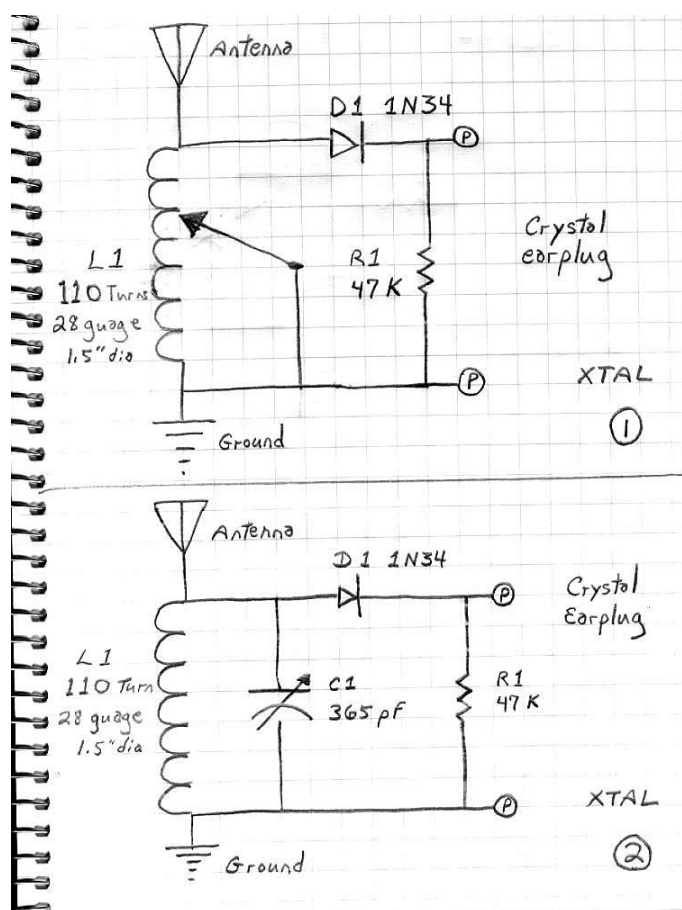 Antenna
D1 1N34
P
Crystal
earplug
L1
110 Turns
28 guage
1.5" dia
R1
47 K
P
XTAL
1
Ground
Antenna
D1 1N34
P
Crystal
Earplug
L1
110 Turn
28 guage
1.5" dia
C1
365 pF
R1
47 K
P
XTAL
2
Ground